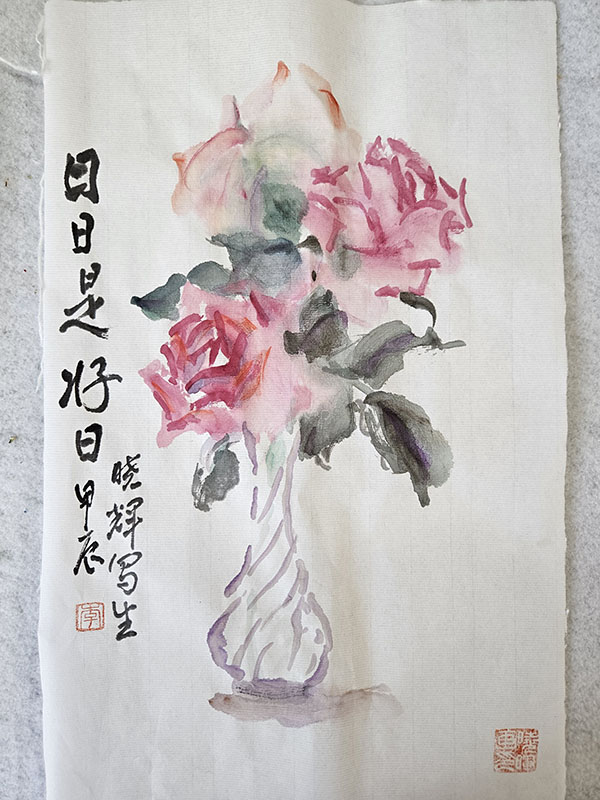 日日是好日
甲辰
晓辉写生
李